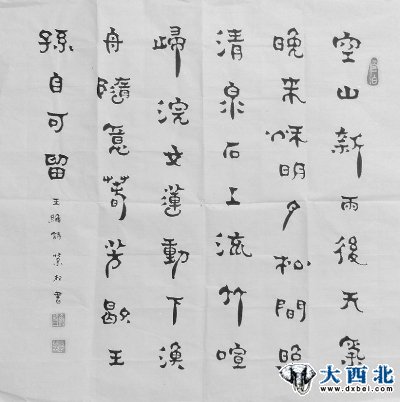 空山新雨後天氣
晚来秋明月松間照
清泉石上流竹喧
歸浣女蓮動下漁
舟隨意春芳歇王
孫自可留
王維詩 書
大西北
www.dxbei.com